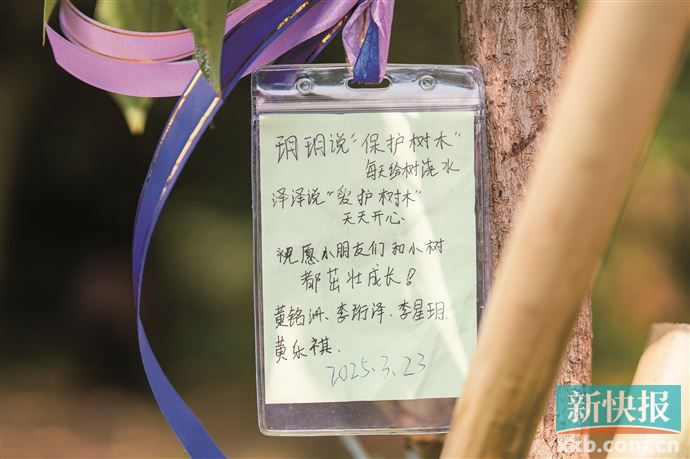 玥玥说“保护树木”
每天给树浇水
泽泽说“爱护树木”
天天开心
祝愿小朋友们和小树
都茁壮成长!
黄铭洲、李珩泽、李星玥、
黄乐祺.
2025.3.23
新快报
xkb.com.cn